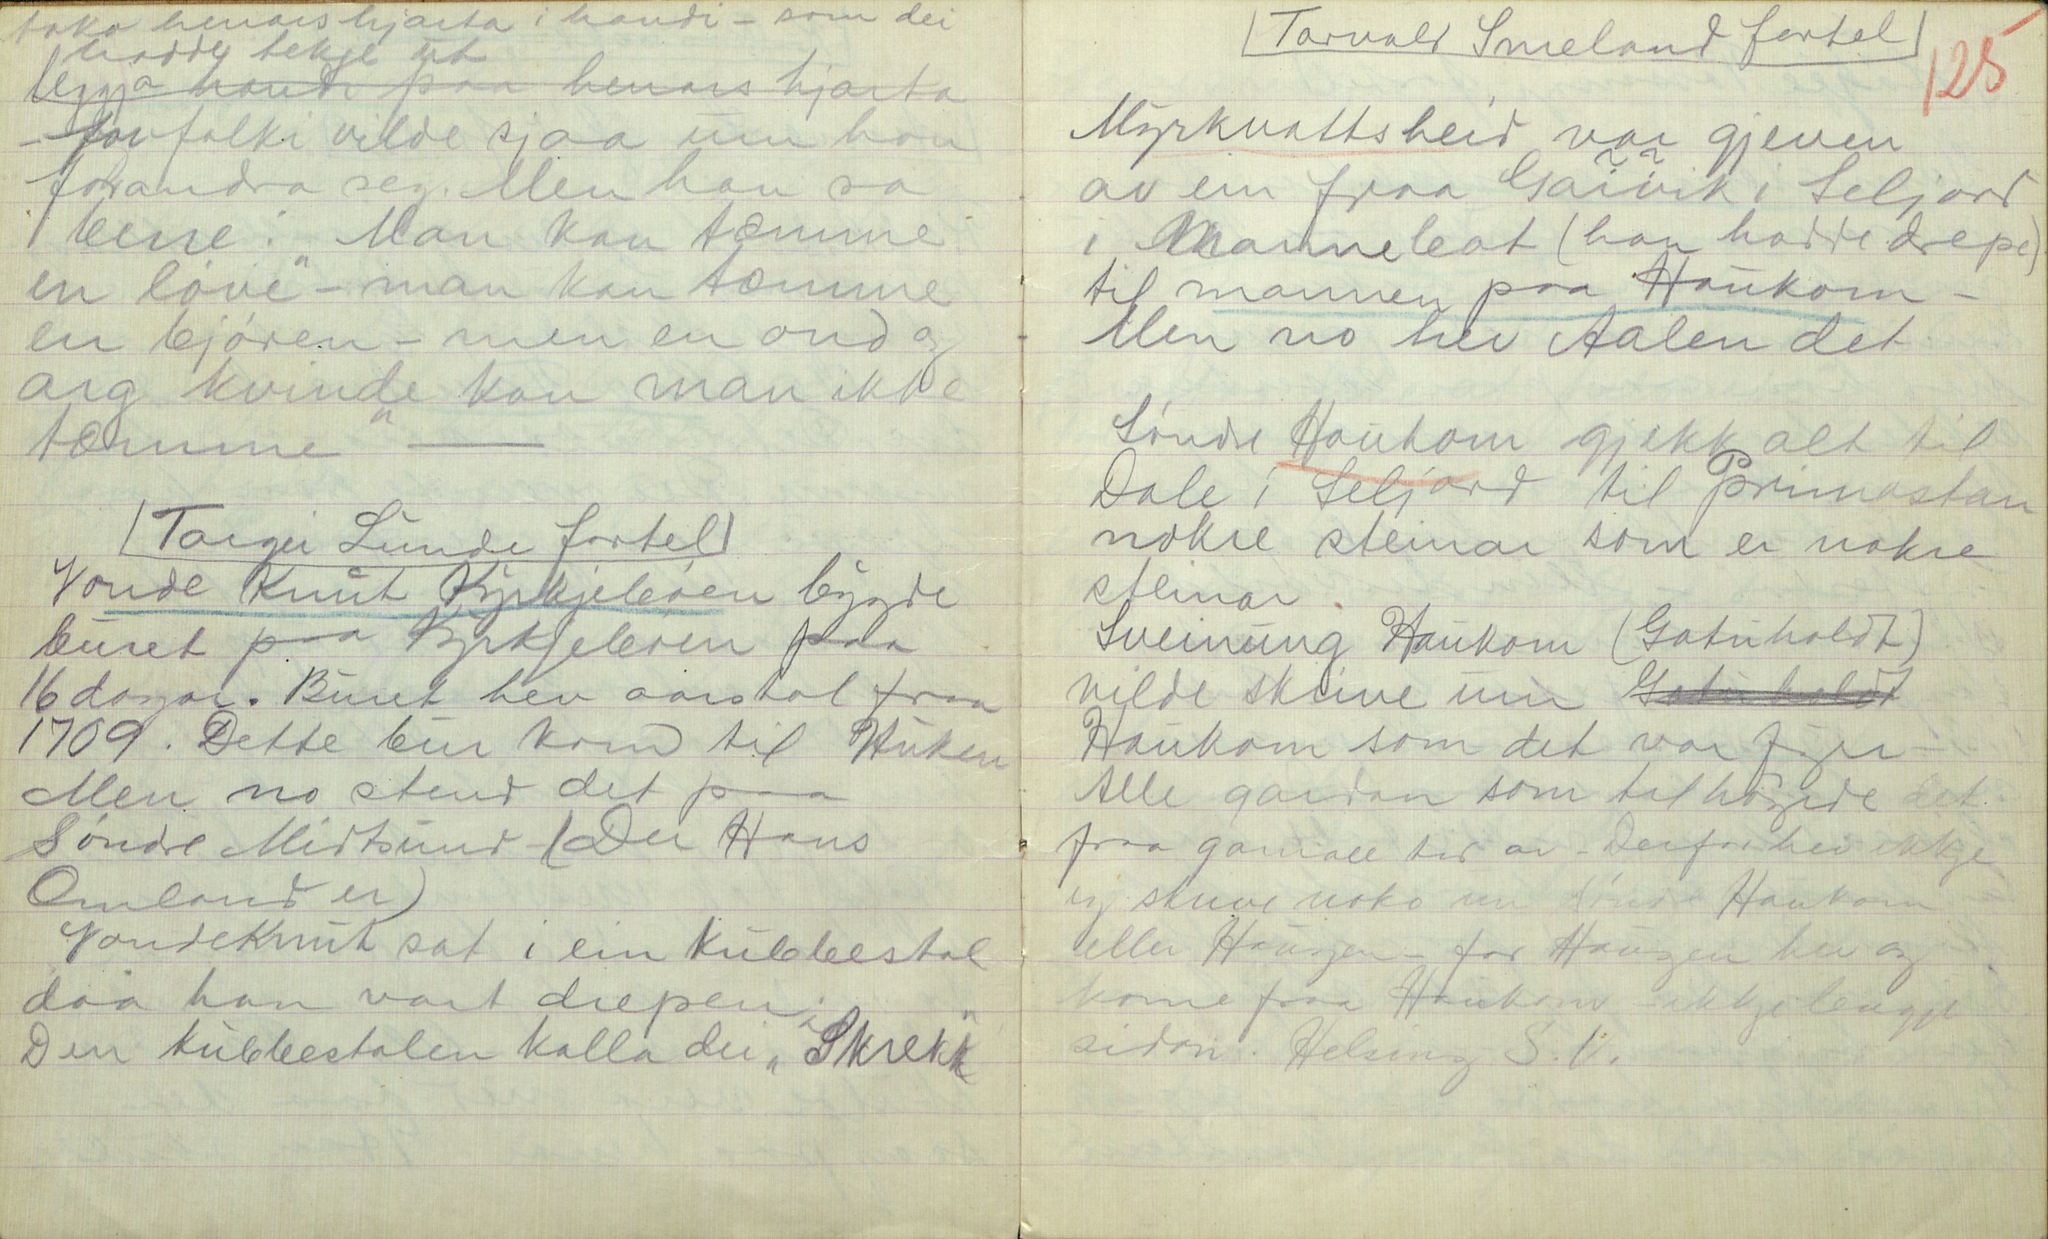 taka hennars hjarta i handi – som dei
hadde tekje ut
leggja handi paa hennars hjarta
– for folki vilde sjaa um han
forandra seg. Men han sa
berre: „Man kan tæmme
en løve" – man kan tæmme
en bjøren – men en ond og
arg kvinde kan man ikke
tæmme" —
[Torgei Lunde fortel]
Vonde Knut Kyrkjebøen bygde
buret paa Kyrkjebøen paa
16 dagar. Buret hev aarstal fraa
1709. Dette bur kom til Huken
Men no stend det paa
Søndre Midtsund (Der Hans
Omland er)
Vonde Knut sat i ein kubbestol
daa han vart drepen.
Den kubbestolen kalla dei „Skrekk"
[Torvald Smeland fortel]
125
Myrkvattsheid var gjeven
av ein fraa Garvik i Seljord
i Mannebot (han hadde drepe)
til mannen paa Haukom –
Men no hev Aalen det
Søndre Haukom gjekk alt til
Dale i Seljord til Primostan
nokre steinar som er nokre
steinar.
Sveinung Haukom (Gotuholdt)
vilde skrive um Gotuholdt
Haukom som det var fyrr –
Alle gardan som tilhøyrde det
fraa gamall tid av – Derfor hev ikkje
eg skrive noko um Søndre Haukom
eller Haugen – for Haugen hev og
kome fraa Haukom – ikkje lengje
sidan. Helsing S. V.